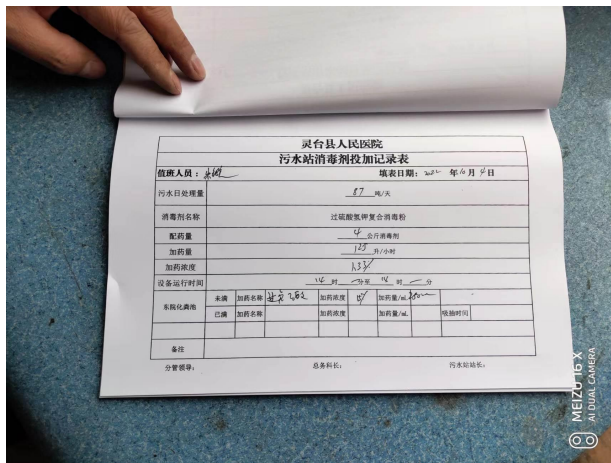 灵台县人民医院
污水站消毒剂投加记录表
值班人员: 填表日期: 2022 年 10 月 4 日
污水日处理量 87 吨/天
消毒剂名称 过硫酸氢钾复合消毒粉
配药量 4 公斤消毒剂
加药量 125 升/小时
加药浓度
设备运行时间 时 分至 时 分
东院化粪池 未满 加药名称 加药浓度 加药量/mL
已满 加药名称 加药浓度 加药量/mL 吸抽时间
备注
分管领导: 总务科长: 污水站站长:
MEIZU 16 X
AI DUAL CAMERA